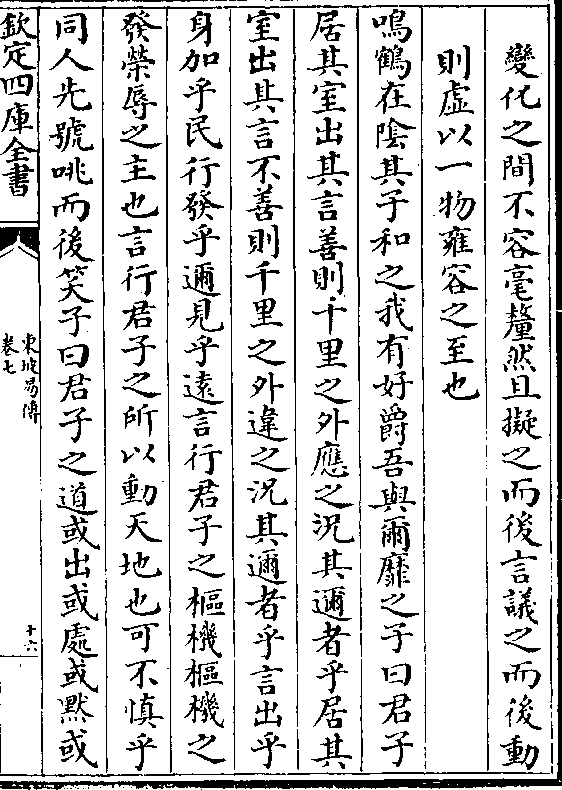 變化之間不容毫釐然且擬之而後言議之而後動
則虚以一物雍容之至也
鳴鶴在隂其子和之我有好爵吾與爾靡之子曰君子
居其室出其言善則千里之外應之況其邇者乎居其
室出其言不善則千里之外違之況其邇者乎言出乎
身加乎民行發乎邇見乎遠言行君子之樞機樞機之
發榮辱之主也言行君子之所以動天地也可不慎乎
同人先號咷而後笑子曰君子之道或出或處或黙或
欽定四庫全書
東坡易傳
卷七
十六